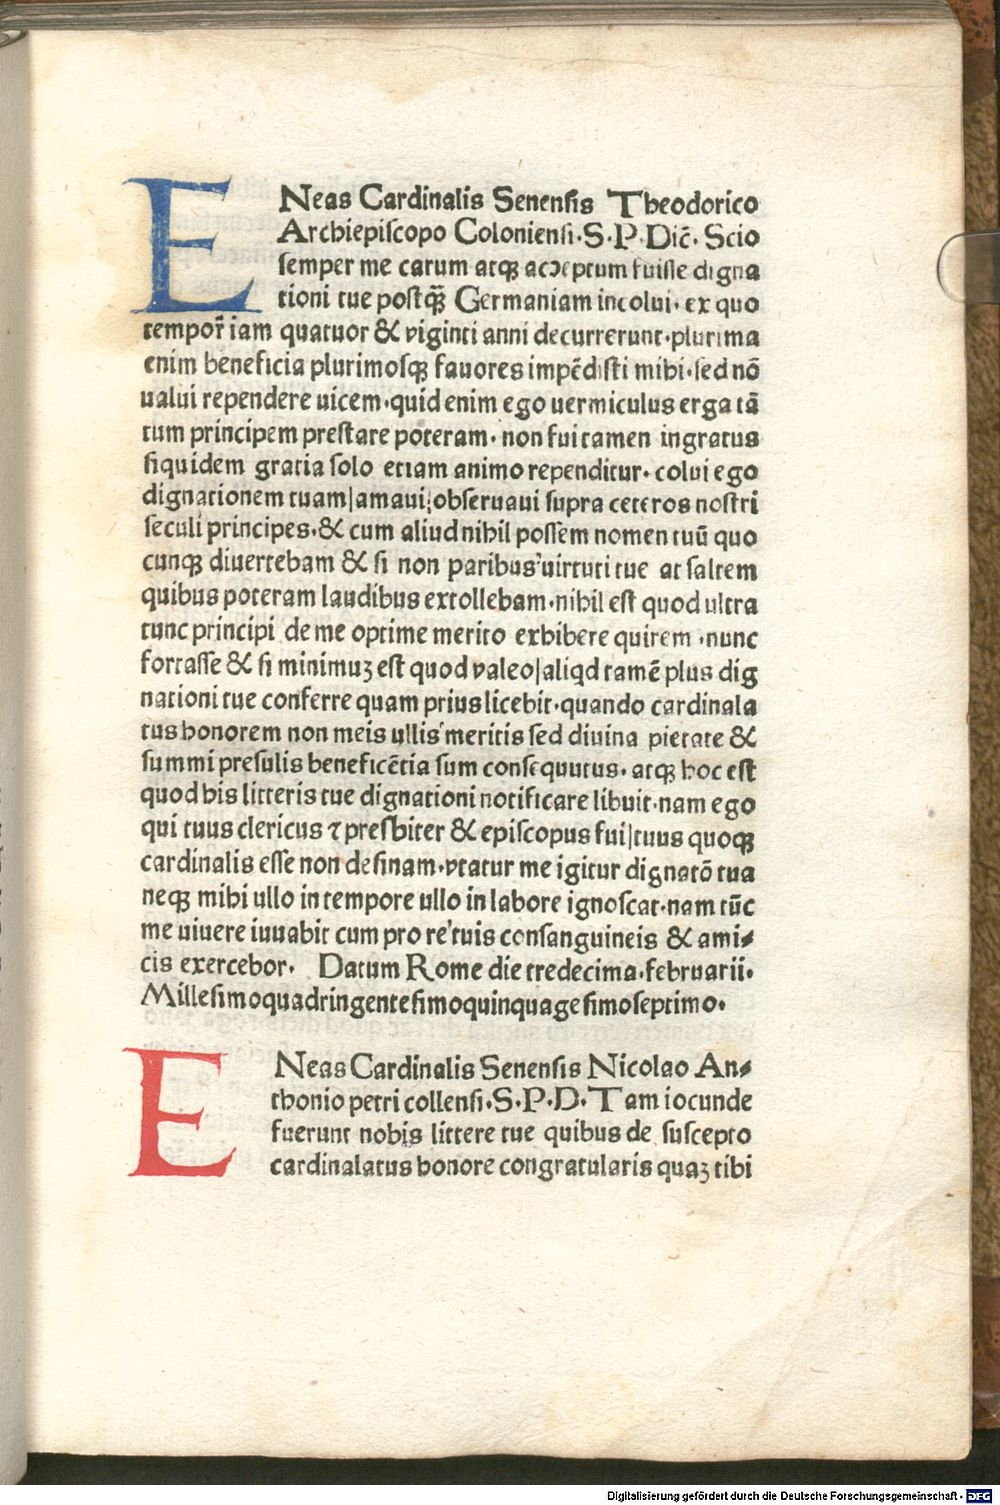 ENeas Cardinalis Senensis Theodorico
Archiepiscopo Coloniensi·S·P·Dic̄· Scio
semper me carum atqꝫ acceptum fuisse digna
tioni tue postq̄ꝫ Germaniam incolui· ex quo
tempor̄ iam quatuor & viginti anni decurrerunt·plurima
enim beneficia plurimosqꝫ fauores impēdisti mihi·sed nō
ualui rependere uicem·quid enim ego uermiculus erga tā
tum principem prestare poteram· non fui tamen ingratus
siquidem gratia solo etiam animo rependitur· colui ego
dignationem tuam|amaui|obseruaui supra ceteros nostri
seculi principes·& cum aliud nihil possem nomen tuū quo
cunqꝫ diuertebam & si non paribus uirtuti tue at saltem
quibus poteram laudibus extollebam·nihil est quod ultra
tunc principi de me optime merito exhibere quirem ·nunc
fortasse & si minimuꝫ est quod valeo|aliqd tamē plus dig
nationi tue conferre quam prius licebit·quando cardinala
tus honorem non meis ullis meritis sed diuina pietate &
summi presulis beneficētia sum consequutus· atqꝫ hoc est
quod his litteris tue dignationi notificare libuit·nam ego
qui tuus clericus ⁊ presbiter & episcopus fui|tuus quoqꝫ
cardinalis esse non desinam·vtatur me igitur dignatō tua
neqꝫ mihi ullo in tempore ullo in labore ignoscat·nam tūc
me uiuere iuuabit cum pro re tuis consanguineis & ami⸗
cis exercebor· Datum Rome die tredecima·februarii·
Millesimoquadringentesimoquinquagesimoseptimo·
ENeas Cardinalis Senensis Nicolao An⸗
thonio petri collensi·S·P·D·Tam iocunde
fuerunt nobis littere tue quibus de suscepto
cardinalatus honore congratularis quaꝫ tibi
Digitalisierung gefördert durch die Deutsche Forschungsgemeinschaft - DFG